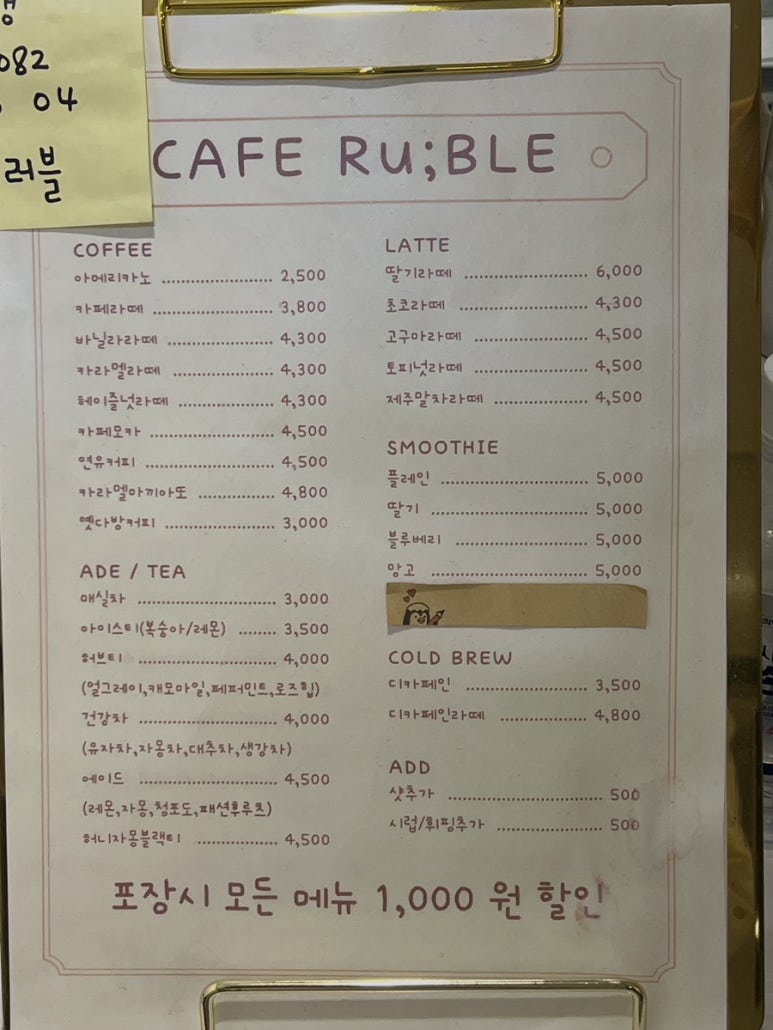 082
04
러블
CAFE RU;BLE
COFFEE
아메리카노 2,500
카페라떼 3,800
바닐라라떼 4,300
카라멜라떼 4,300
헤이즐넛라떼 4,300
카페모카 4,500
연유커피 4,500
카라멜마끼아또 4,800
옛다방커피 3,000
ADE / TEA
매실차 3,000
아이스티(복숭아/레몬) 3,500
허브티 4,000
(얼그레이,캐모마일,페퍼민트,로즈힙)
건강차 4,000
(유자차,자몽차,대추차,생강차)
에이드 4,500
(레몬,자몽,청포도,패션후루츠)
허니자몽블랙티 4,500
LATTE
딸기라떼 6,000
초코라떼 4,300
고구마라떼 4,500
토피넛라떼 4,500
제주말차라떼 4,500
SMOOTHIE
플레인 5,000
딸기 5,000
블루베리 5,000
망고 5,000
COLD BREW
디카페인 3,500
디카페인라떼 4,800
ADD
샷추가 500
시럽/휘핑추가 500
포장시 모든 메뉴 1,000 원 할인